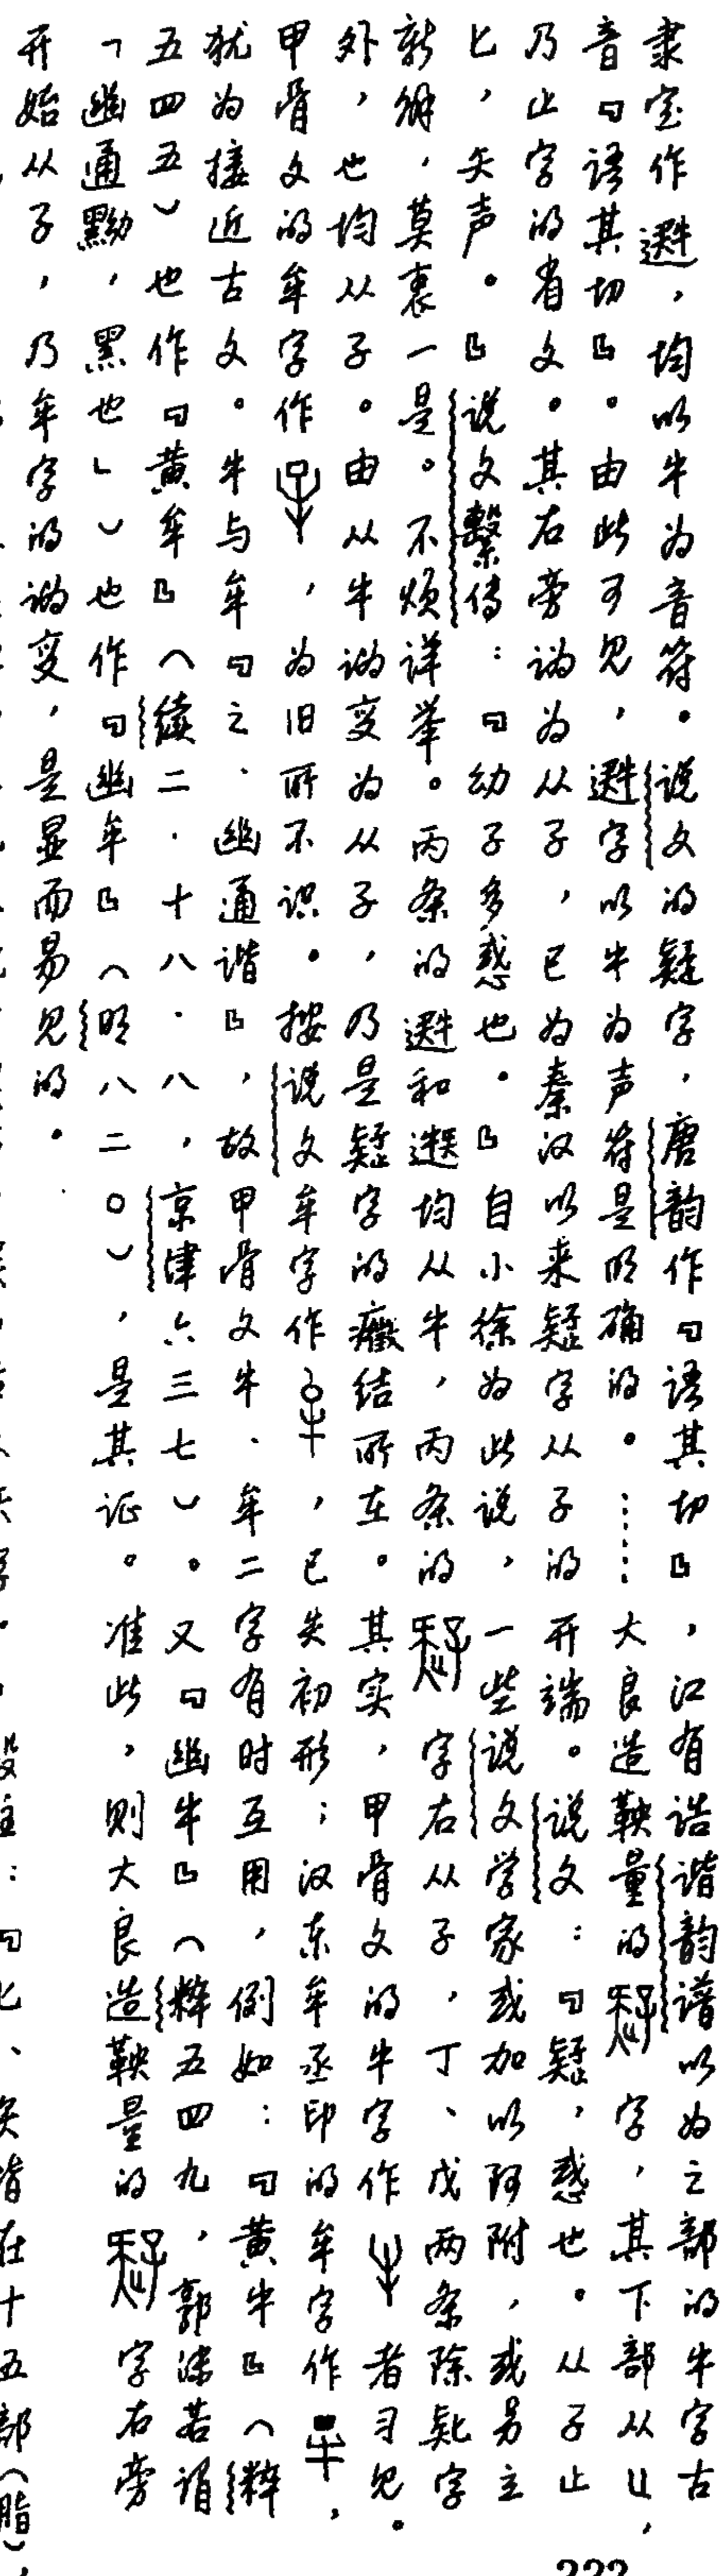 隶定作𨗓，均以牛为音符。说文的疑字，唐韵作『语其切』，江有诰谐韵谱以为之部的牛字古
音『语其切』。由此可见，字以牛为声符是明确的。……大良造鞅量的字，其下部从凵，
乃止字的省文。其右旁讹为从子，已为秦汉以来疑字从子的开端。说文：『疑，惑也。从子止
匕，矢声。』说文繫传：『幼子多惑也。』自小徐为此说，一些说文学家或加以阿附，或另立
新解，莫衷一是。不烦详举。丙条的和均从牛，丙条的字右从子，丁、戊两条除字
外，也均从子。由从牛讹变为从子，乃是疑字的症结所在。其实，甲骨文的牛字作者习见。
甲骨文的牟字作，为旧所不识。按说文牟字作，已失初形；汉东牟丞印的牟字作，
犹为接近古文。牛与牟『之、幽通谐』，故甲骨文牛、牟二字有时互用，例如：『黄牛』（粹
五四五）也作『黄牟』（续二·十八·八，京津六三七）。又『幽牛』（粹五四九，郭沫若谓
「幽通黝，黑也」）也作『幽牟』（明八二〇），是其证。准此，则大良造鞅量的字右旁
开始从子，乃牟字的讹变，是显而易见的。